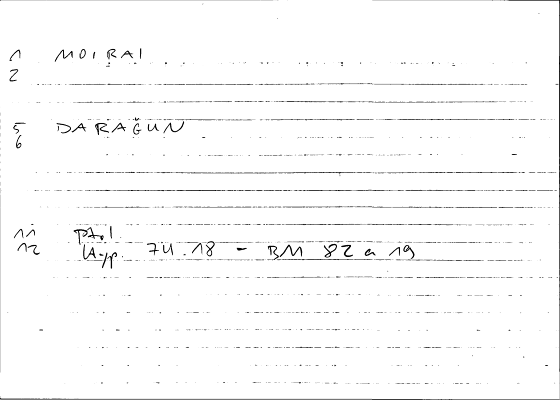 1 MOIRAI
2
5 DARAĞUN
6
11
12 74.18 - BM 82 a 19